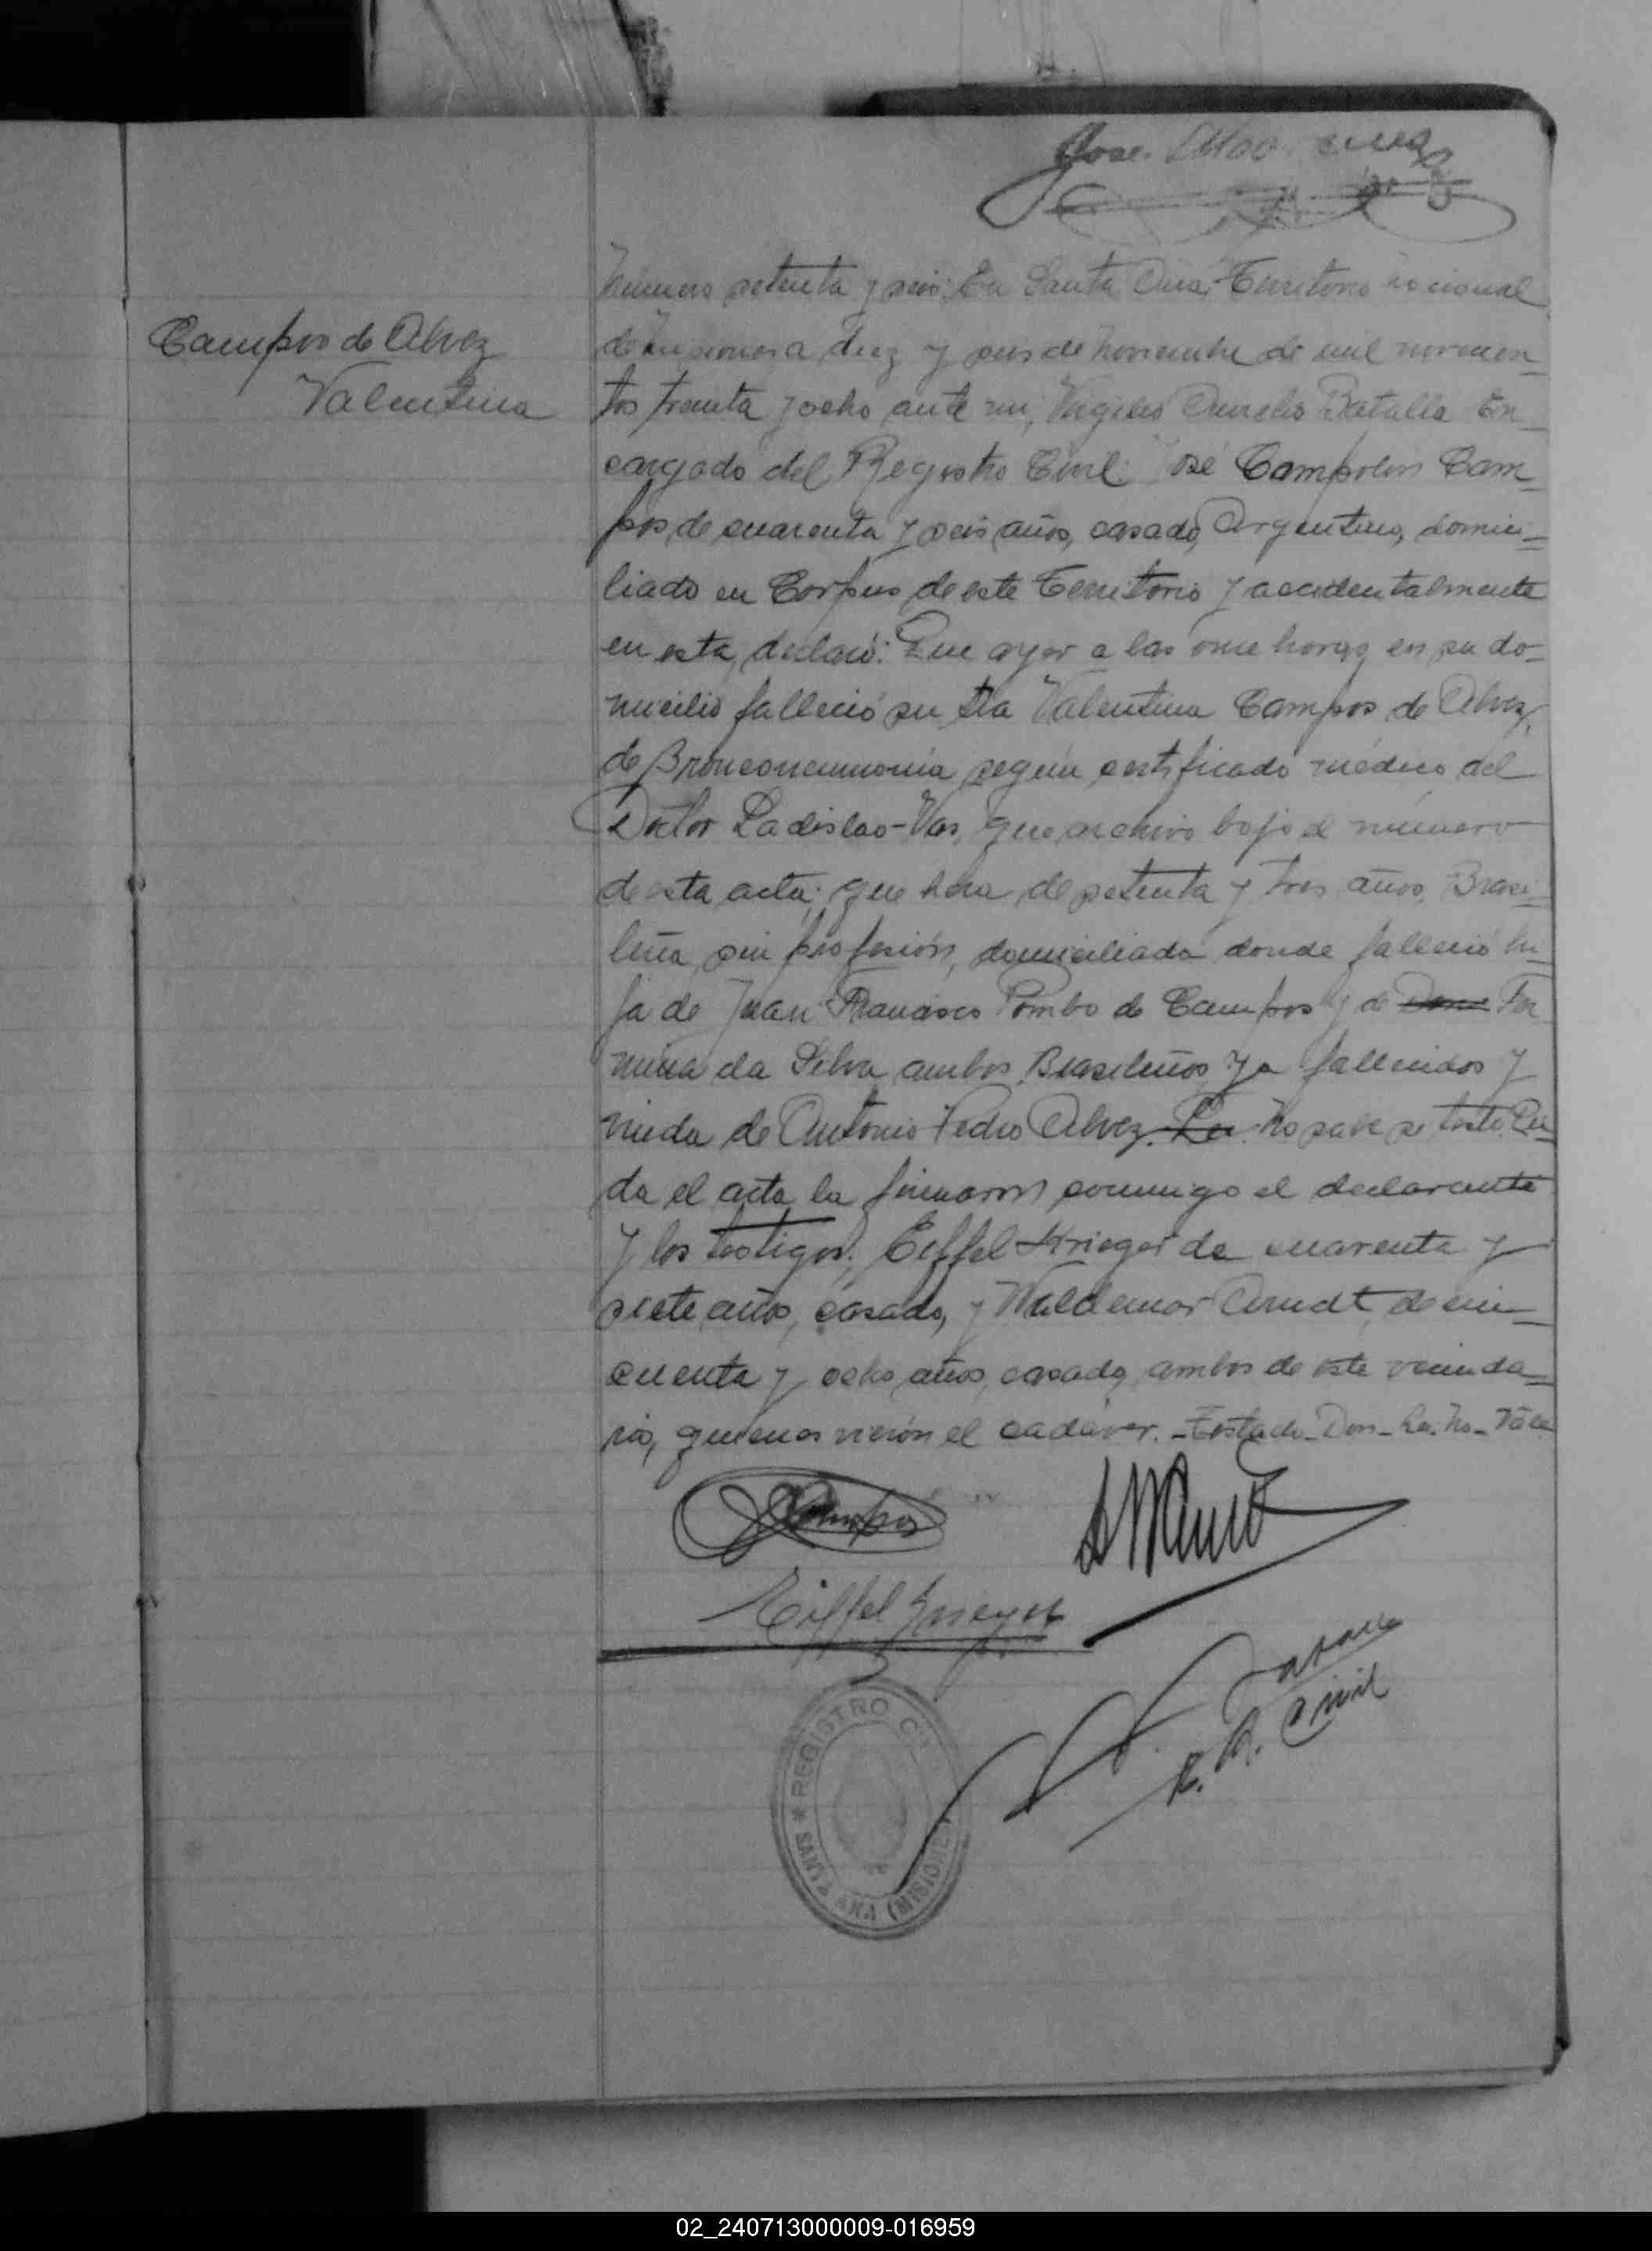 Jose
Campos de Alvez
Valentina
Número setenta y seis: En Santa Ana, Territorio nacional
de Misiones a diez y seis de Noviembre de mil novecien-
tos treinta y ocho ante mi, Virgilio Aurelio Batalla En-
cargado del Registro Civil: José Campolin Cam-
pos de cuarenta y seis años, casado, Argentino, domici-
liado en Corpus de este Territorio y accidentalmente
en esta, declaró: Que ayer a las once horas, en su do-
micilio falleció su tia Valentina Campos de Alvez,
de Bronconeumonia según certificado médico del
Doctor Ladislao Vas, que archivo bajo el número
de esta acta; que hera de setenta y tres años, Brasi-
leña, sin profesión, domiciliada donde falleció hi-
ja de Juan Francisco Pombo de Campos y de Fer
mina da Silva ambos Brasileños ya fallecidos y
viuda de Antonio Pedro Alvez. No sabe se testó. Leí-
da el acta la firmaron conmigo el declarante
y los testigos: Eiffel Krieger de cuarenta y
siete años, casado, y Waldemar Arndt, de cin-
cuenta y ocho años, casado, ambos de este vecinda-
rio, quienes vieron el cadáver. - Testado - Don - Le. No - Vale
Campos
Eiffel Krieger
R. Civil
REGISTRO CIVIL
SANTA ANA (MISIONES)
02_240713000009-016959